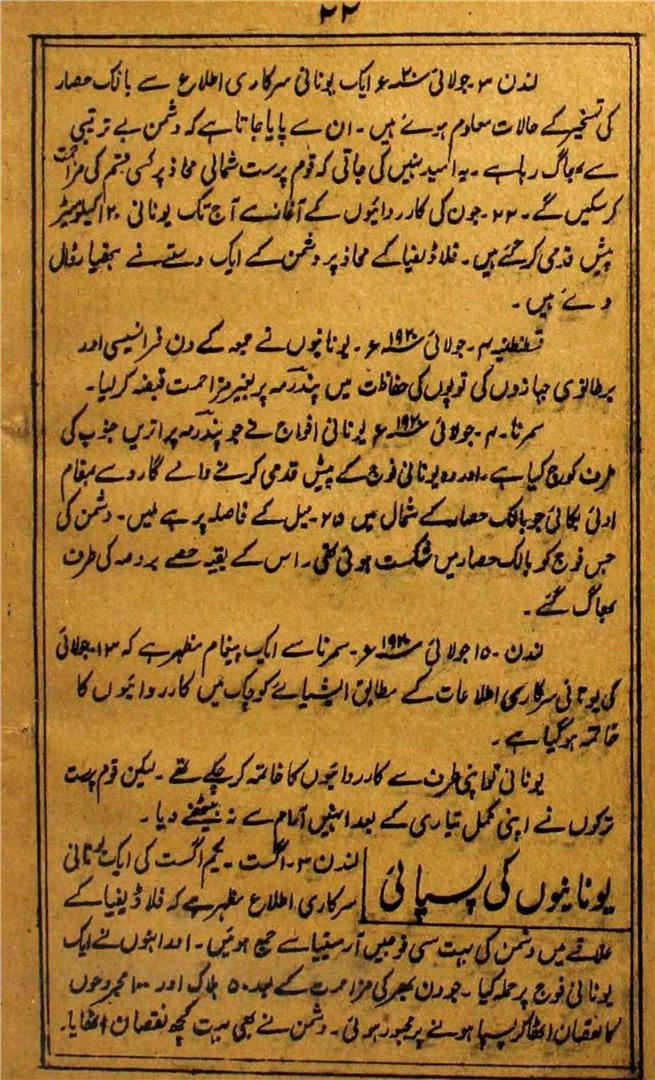 ۲۲
لندن ۳۔جولائی ۲۰ء ایک یونانی سرکاری اطلاع سے بانک حصار
کی تسخیر کے حالات معلوم ہوئے ہیں۔ ان سے پایا جاتا ہے کہ دشمن بے ترتیبی
سے بھاگ رہا ہے۔ یہ امید نہیں کی جاتی کہ قوم پرست شمالی محاذ پر کسی قسم کی مزاحمت
کر سکیں گے۔ ۲۲۔جون کی کارروائیوں کے آغاز سے آج تک یونانی ۱۲۰ کیلومیٹر
پیش قدمی کر گئے ہیں۔ فلاڈلفیا کے محاذ پر دشمن کے ایک دستے نے ہتھیار ڈال
دئے ہیں۔
قسطنطنیہ ۴۔جولائی ۱۹۲۰ء۔ یونانیوں نے جمعہ کے دن فرانسیسی اور
برطانوی جہازوں کی توپوں کی حفاظت میں پندرمہ پر بغیر مزاحمت قبضہ کر لیا۔
سمرنا۔۴۔جولائی ۱۹۲۰ء یونانی افواج نے جو پندرمہ پر اتریں جنوب کی
طرف کوچ کیا ہے۔ اور وہ یونانی فوج کے پیش قدمی کرنے والے گارد سے بمقام
جو بالک حصار کے شمال میں ۲۵۔میل کے فاصلہ پر ہے ملیں۔ دشمن کی
جس فوج کو بالک حصار میں شکست ہوئی تھی۔ اس کے بقیہ حصے برومہ کی طرف
بھاگ گئے۔
لندن۔۱۵ جولائی ۱۹۲۰ء۔ سمرنا سے ایک پیغام مظہر ہے کہ ۱۳۔جولائی
کی یونانی سرکاری اطلاعات کے مطابق ایشیائے کوچک میں کارروائیوں کا
خاتمہ ہو گیا ہے۔
یونانی تو اپنی طرف سے کارروائیوں کا خاتمہ کر چکے تھے۔ لیکن قوم پرست
ترکوں نے اپنی مکمل تیاری کے بعد انہیں آرام سے نہ بیٹھنے دیا۔
یونانیوں کی پسپائی
لندن ۳۔اگست۔ یکم اگست کی ایک یونانی
سرکاری اطلاع مظہر ہے کہ فلاڈیفیا کے
علاقے میں دشمن کی بہت سی فوجیں آرمینیا سے جمع ہوئیں۔ اور انہوں نے ایک
یونانی فوج پر حملہ کیا۔ جو دن بھر کی مزاحمت کے بعد ۵۰ ہلاک اور ۱۰۰ مجروحوں
کا نقصان اٹھا کر پسپا ہونے پر مجبور ہوئی۔ دشمن نے بھی بہت کچھ نقصان اٹھایا۔